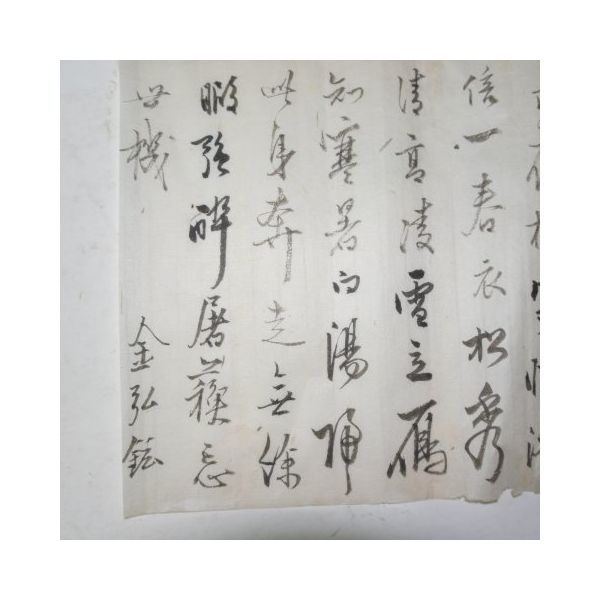 信一春衣松秀
清高凌雪立鴈
知寒暑向陽歸
此身奔走無餘
暇強醉屠蘇忘
世機
金弘鉉